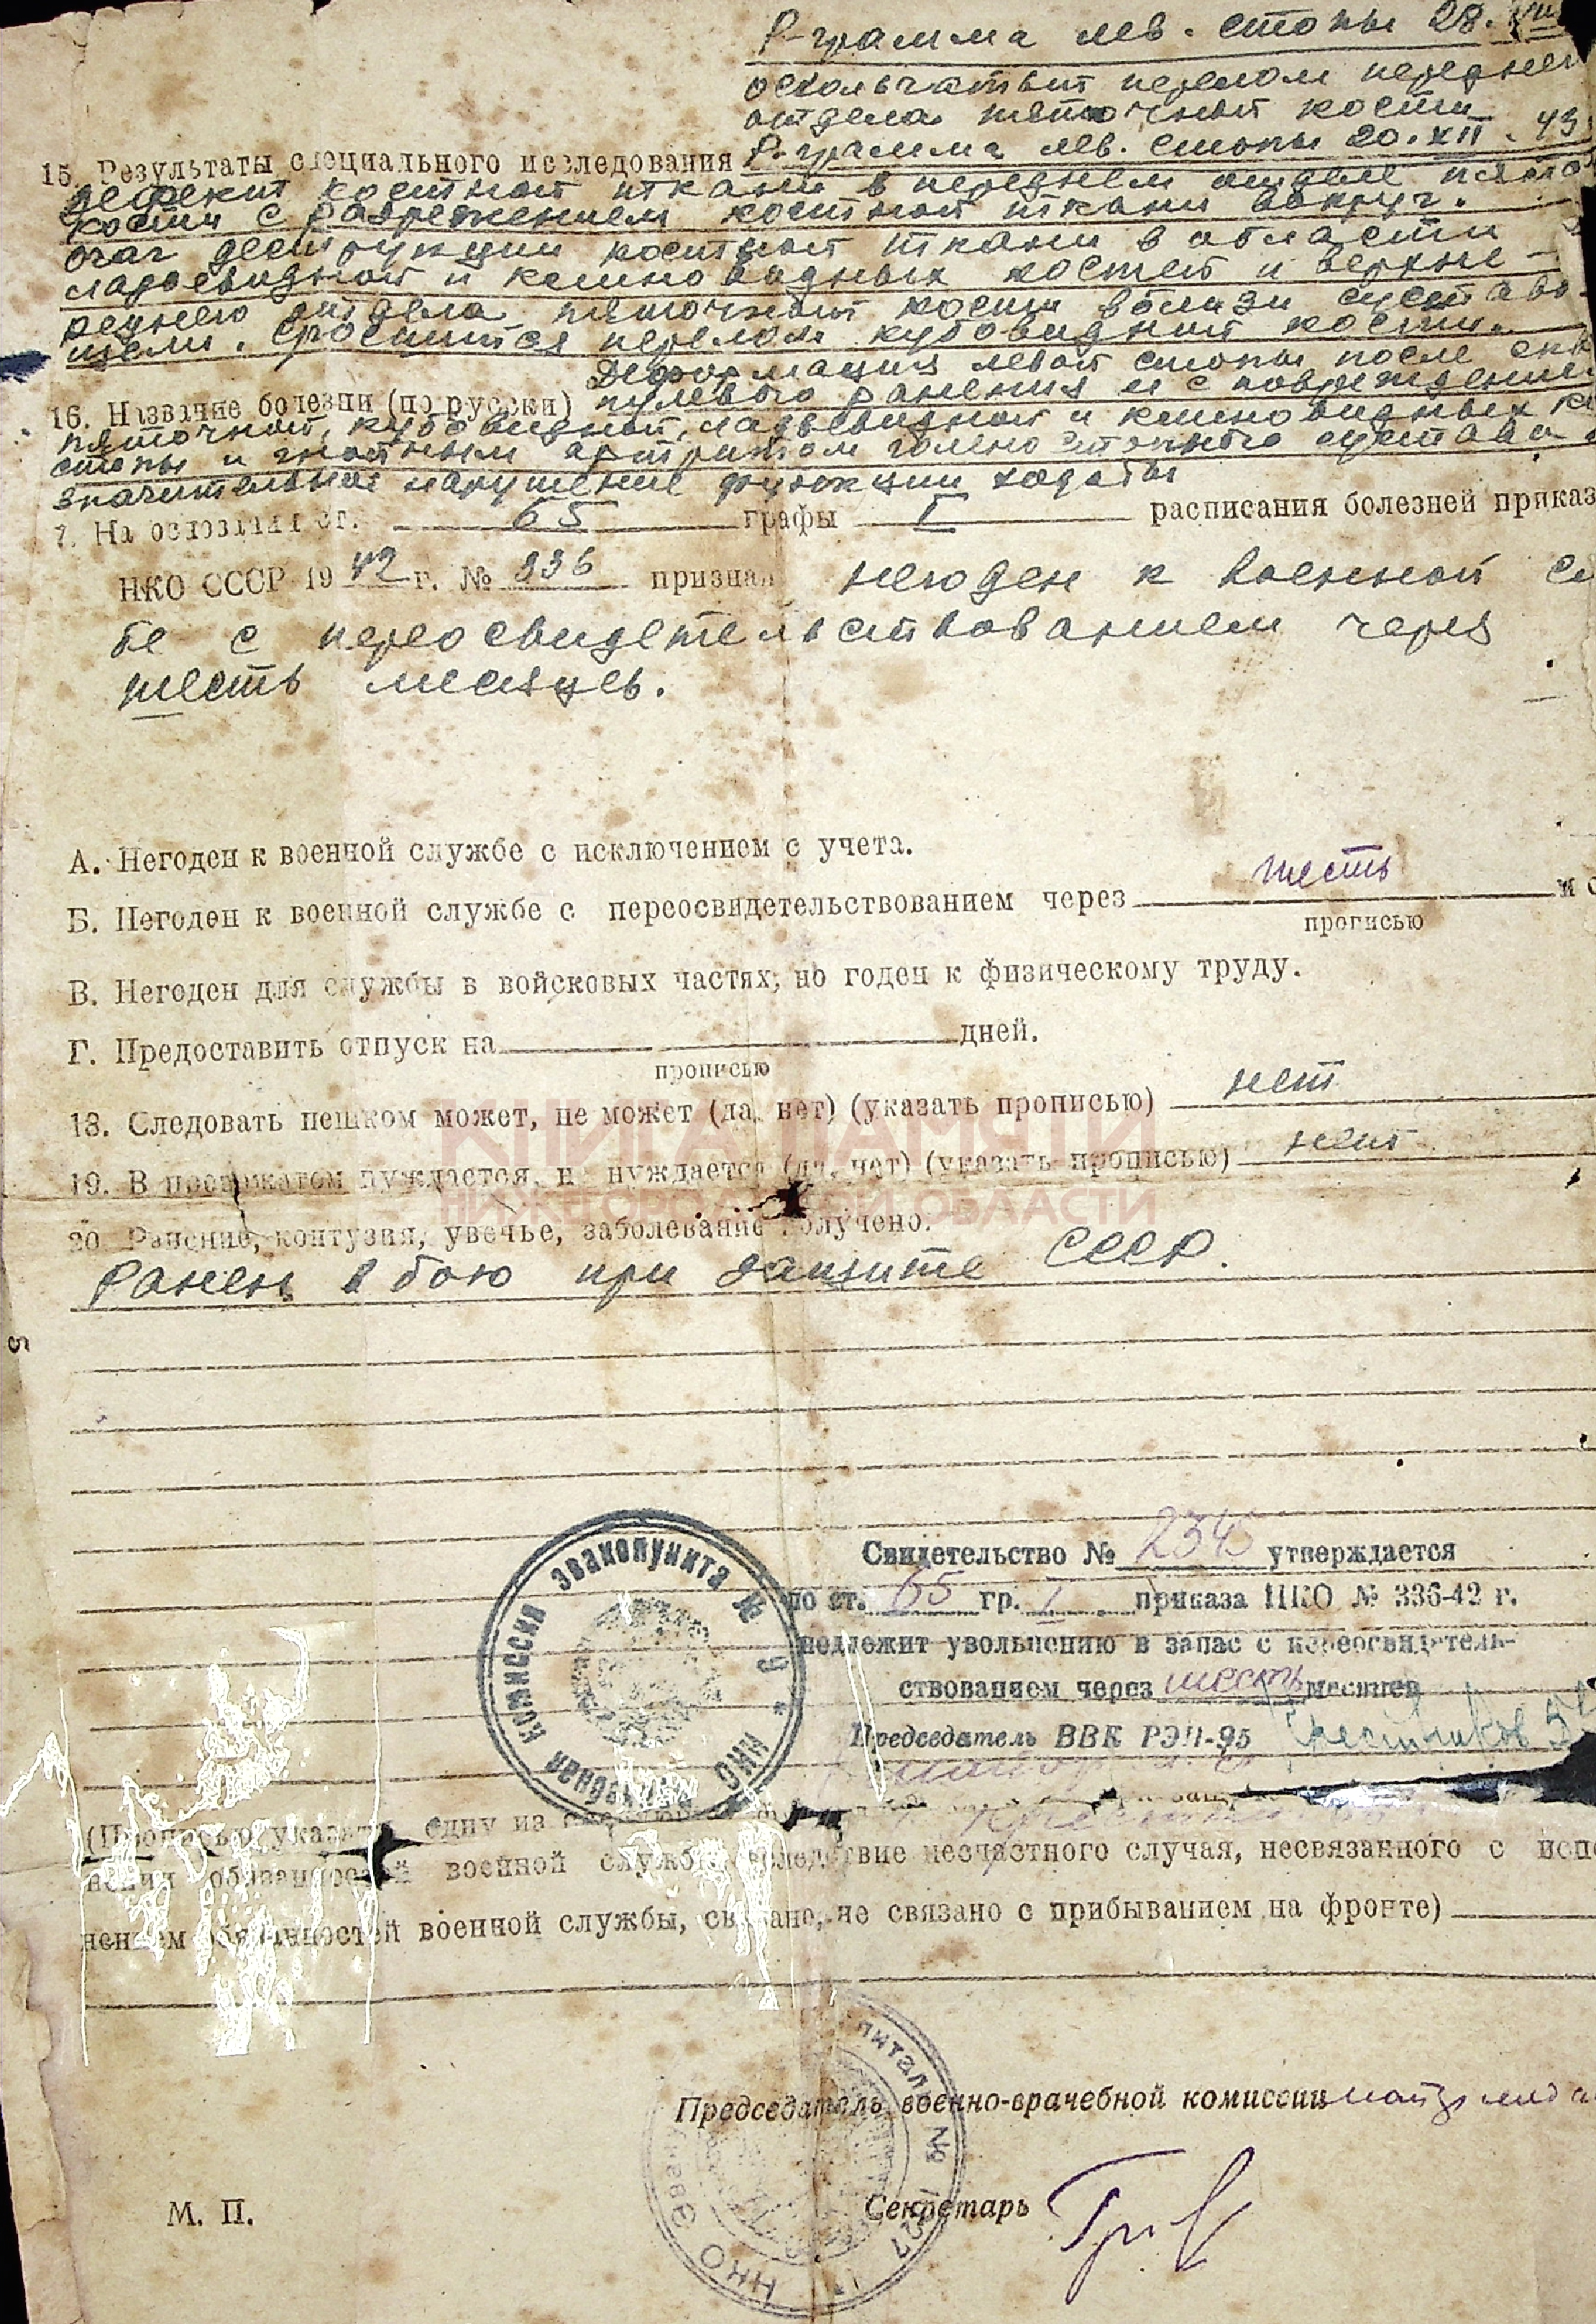 R-грамма лев. стопы 28. VIII
оскольчатый перелом переднего
отдела пяточной кости
15. Результаты специального исследования R-грамма лев. стопы 20. XII. 43
дефект костной ткани в переднем отделе пяточ
кости с разрежением костной ткани вокруг.
очаг деструкции костной ткани в области
ладьевидной и клиновидных костей и верхне-
реднего отдела пяточной кости вблизи сустава
щели. Сросшийся перелом кубовидной кости.
Деформация левой стопы после
16. Название болезни (по русски) пулевого ранения и с повреждением
пяточной, кубовидной, ладьевидной и клиновидных
стопы и гнойным артритом голено стопного сустава
значительное нарушение функции ходьбы
7. На основании ст. 65 графы I расписания болезней приказ
НКО СССР 1942 г. № 336 признан негоден к военной
бе с переосвидетельствованием через
шесть месяцев.
А. Негоден к военной службе с исключением с учета.
Б. Негоден к военной службе с переосвидетельствованием через шесть
прописью
В. Негоден для службы в войсковых частях, но годен к физическому труду.
Г. Предоставить отпуск на дней.
прописью
18. Следовать пешком может, не может (да, нет) (указать прописью) нет
19. В провожатом нуждается, не нуждается (да, нет) (указать прописью) нет
КНИГА ПАМЯТИ
НИЖЕГОРОДСКОЙ ОБЛАСТИ
20. Ранение, контузия, увечье, заболевание получено.
Ранен в бою при защите СССР.
Свидетельство № 234 утверждается
по ст. 65 гр. I приказа НКО № 336-42 г.
подлежит увольнению в запас с переосвидетель-
ствованием через шесть месяцев
Председатель ВВК РЭП-95
комиссия эвакопункта № НКО
(Прописью указать одну из
нении обязанностей военной службы, вследствие несчастного случая, несвязанного с
нением обязанностей военной службы, связано, не связано с прибыванием на фронте)
Председатель военно-врачебной комиссии
Секретарь
М. П.
питаль № НКО